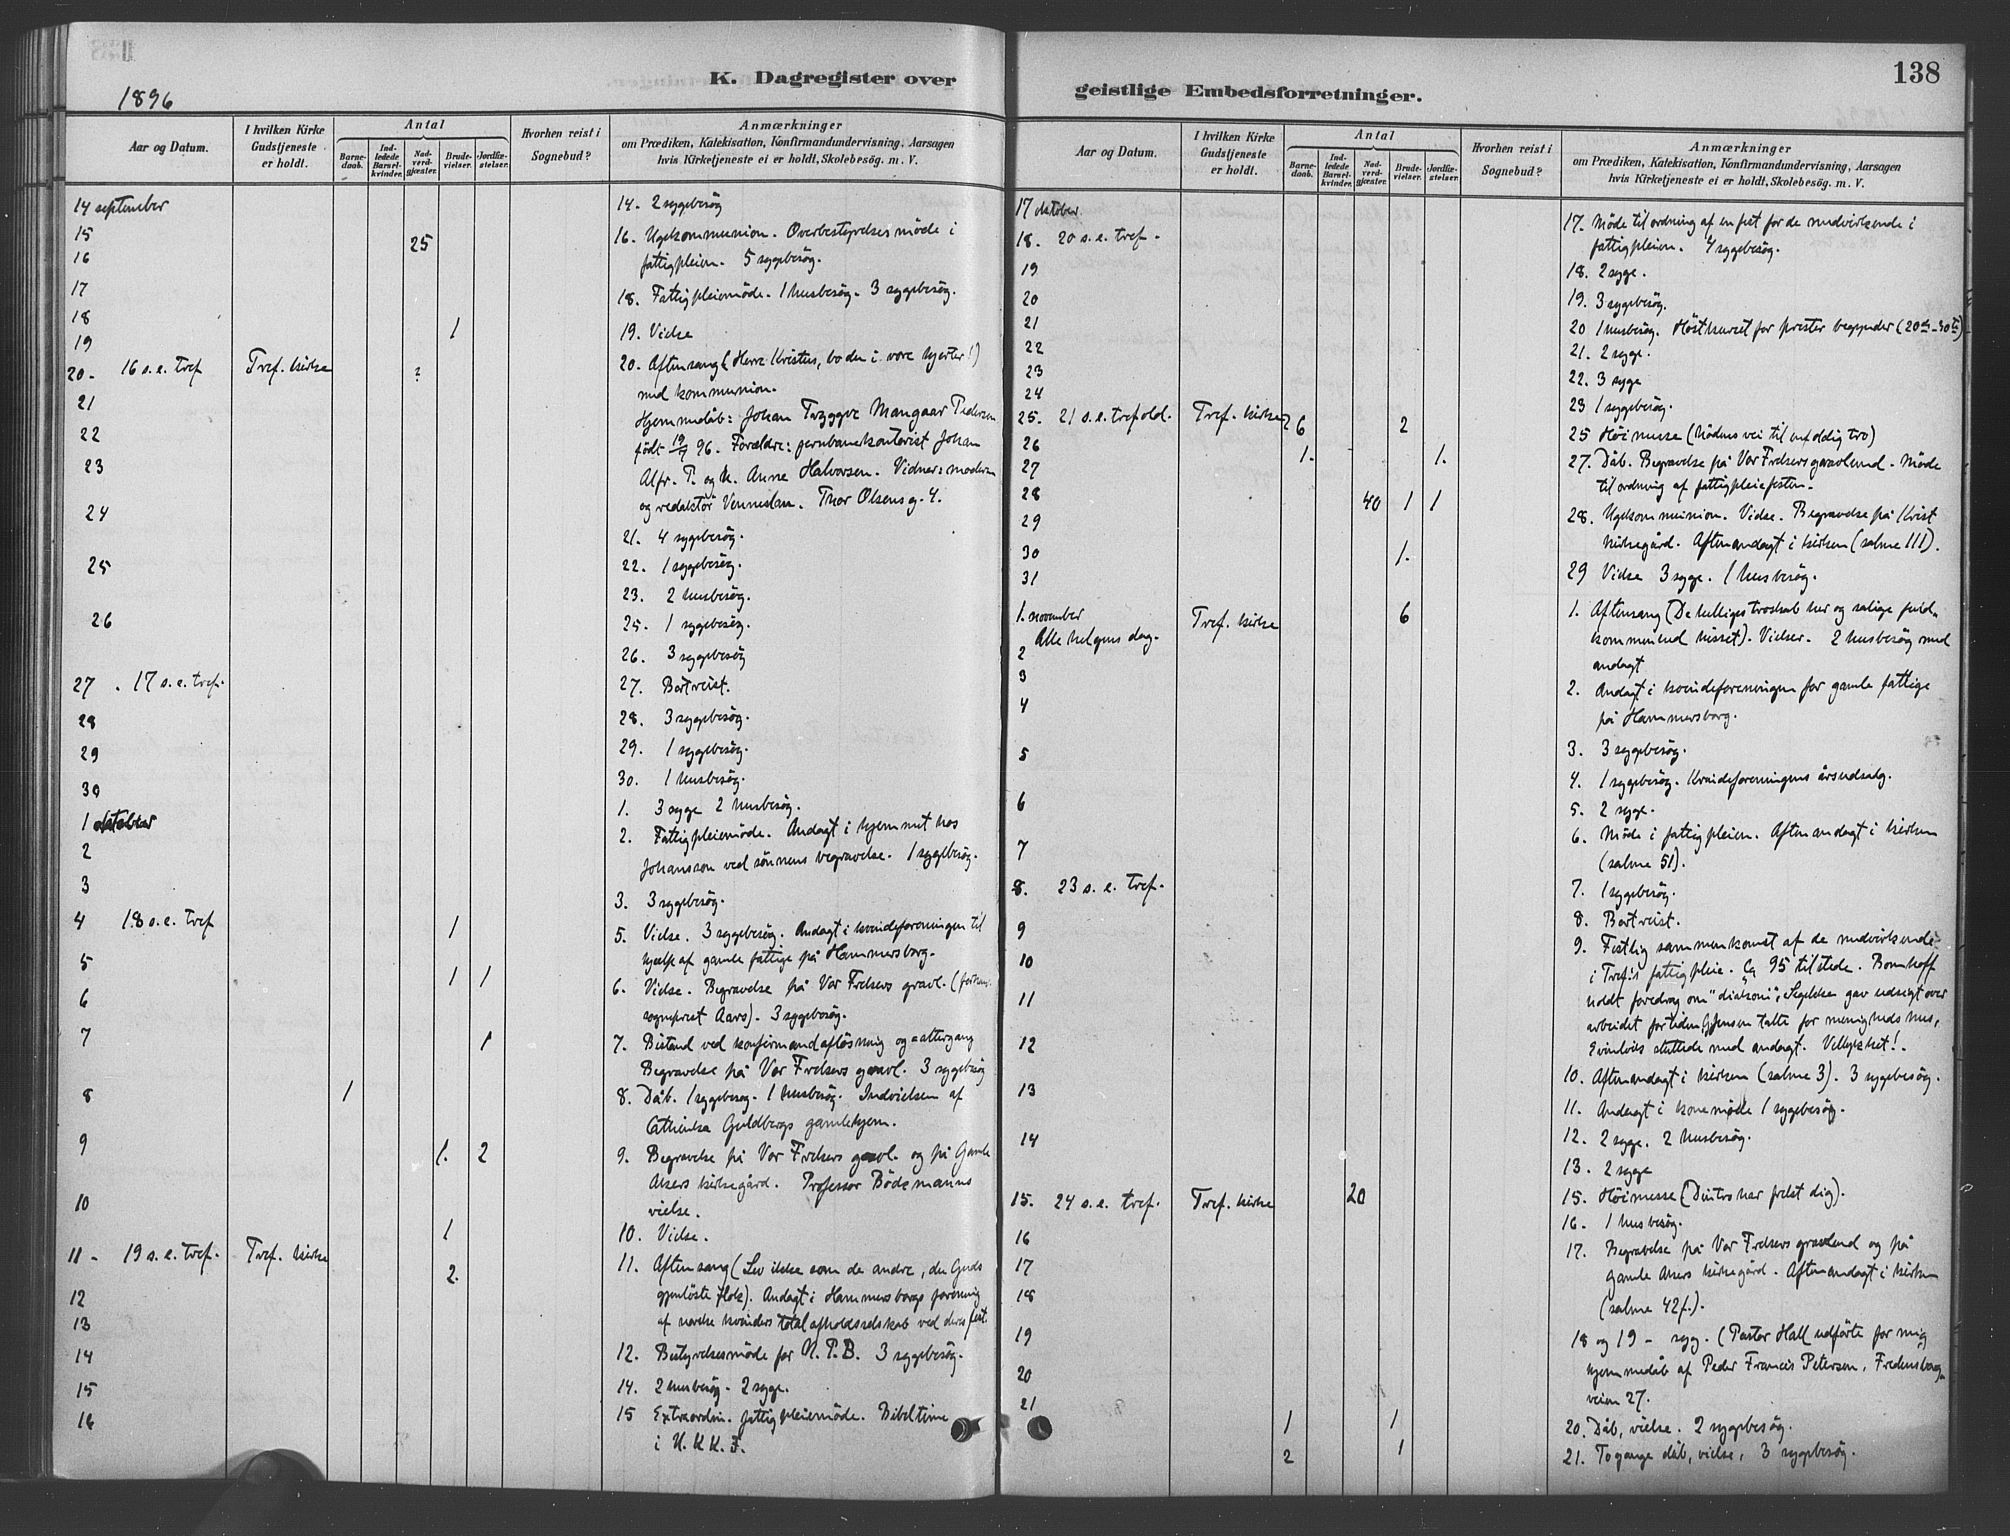 138
K. Dagregister over
geistlige Embedsforretninger.
1896
Aar og Datum.
I hvilken Kirke
Gudstjeneste
er holdt.
Antal
Barne-
daab.
Ind-
ledede
Barsel-
kvinder.
Nad-
verd-
gjæster.
Brude-
vielser.
Jordfæ-
stelser.
Hvorhen reist i
Sognebud?
Anmærkninger
om Prædiken, Katekisation, Konfirmandundervisning, Aarsagen
hvis Kirketjeneste ei er holdt, Skolebesög. m. V.
14 september
15
25
16
17
18
1
19
20- 16 s.e. tref Tref. kirke ?
21
22
23
24
25
26
27 . 17 s.e. tref.
28
29
30
1 oktober
2
3
4 18 s.e. tref 1
5
1 1
6
7 1
8 1
9 1. 2
10
1
11 - 19 s.e. tref. Tref. kirke
2.
12
13
14
15
16
14. 2 sygebesøg
16. Ugekommunion. Overbestyrelsesmøde i
fattigpleien. 5 sygebesøg.
18. Fattigpleiemøde. 1 husbesøg. 3 sygebesøg.
19. Vielse
20. Aftensang (Herre Kristus, bo du i vore hjerter!)
med kommunion.
Hjemmedåb: Johan Tryggve Mangaar Pedersen
født 19/7 96. Forældre: jernbanekontorist Johan
Alfr. P. og H. Anne Halvorsen. Vidner: moderen
og redaktør Vennesland. Thor Olsens g. 4.
21. 4 sygebesøg.
22. 1 sygebesøg.
23. 2 husbesøg.
25. 1 sygebesøg.
26. 3 sygebesøg
27. Bortreist.
28. 3 sygebesøg.
29. 1 sygebesøg.
30. 1 husbesøg.
1. 3 syge 2 husbesøg.
2. Fattigpleiemøde. Andagt i hjemmet hos
Johansson ved sønnens begravelse. 1 sygebesøg.
3. 3 sygebesøg.
5. Vielse. 3 sygebesøg. Andagt i kvindeforeningen til
hjælp af gamle fattige på Hammersborg.
6. Vielse. Begravelse på Vor Frelsers gravl. (forhenv.
sogneprest Aars). 3 sygebesøg.
7. Bistand ved konfirmandafløsning og =altergang
Begravelse på Vor Frelsers gravl. 3 sygebesøg
8. Dåb. 1 sygebesøg. 1 husbesøg. Indvielsen af
Cathinka Guldbergs gamlehjem.
9. Begravelse på Vor Frelsers gravl. og på Gamle
Akers kirkegård. Professor Bödtmanns
vielse.
10. Vielse.
11. Aftensang (Lev ikke som de andre, du Guds
gjenløste folk). Andagt i Hammersborgs forening
af norske kvinders totalafholdsselskab ved deres fest.
12. Bestyrelsesmøde for N. P. B. 3 sygebesøg.
14. 2 husbesøg. 2 syge.
15 Extraordin. fattigpleiemøde. Bibeltime
i U. K. K. F.
Aar og Datum.
I hvilken Kirke
Gudstjeneste
er holdt.
Antal
Barne-
daab.
Ind-
ledede
Barsel-
kvinder.
Nad-
verd-
gjæster.
Brude-
vielser.
Jordfæ-
stelser.
Hvorhen reist i
Sognebud?
Anmærkninger
om Prædiken, Katekisation, Konfirmandundervisning, Aarsagen
hvis Kirketjeneste ei er holdt, Skolebesög. m. V.
17 oktober
18. 20 s.e. tref.
19
20
21
22
23
24
25. 21 s.e. trefold. Tref. kirke 6 2
26
1. 1.
27
28 40 1 1
29
30 1.
31
1. november Tref. kirke 6
Alle helgens dag.
2
3
4
5
6
7
8. 23 s.e. tref.
9
10
11
12
13
14
15. 24 s.e. tref. Tref. kirke 20
16
17
18
19
20
21
1 1
2 1
17. Møde til ordning af en fest for de medvirkende i
fattigpleien. 4 sygebesøg.
18. 2 syge.
19. 3 sygebesøg.
20 1 husbesøg. Høstkurset for prester begynder (20de-30te)
21. 2 syge.
22. 3 syge
23 1 sygebesøg.
25 Høimesse (Nådens vei til enfoldig tro)
27. Dåb. Begravelse på Vor Frelsers gravlund. Møde
til ordning af fattigpleiefesten.
28. Ugekommunion. Vielse. Begravelse på Krist
kirkegård. Aftenandagt i kirken (salme 111).
29 Vielse 3 syge. 1 husbesøg.
1. Aftensang (De helliges troskab her og salige fuld-
kommenhed hisset). Vielser. 2 husbesøg med
andagt
2. Andagt i kvindeforeningen for gamle fattige
på Hammersborg.
3. 3 sygebesøg.
4. 1 sygebesøg. Kvindeforeningens årsudsalg.
5. 2 syge.
6. Møde i fattigpleien. Aftenandagt i kirken
(salme 51).
7. 1 sygebesøg.
8. Bortreist.
9. Festlig sammenkomst af de medvirkende
i Tref's fattigpleie. Ca 95 tilstede. Bomhoff
holdt foredrag om "diakoni", Segelcke gav udsigt over
arbeidet for tiden, Gjensen talte for menighedshus,
sluttede med andagt. Vellykket!
10. Aftenandagt i kirken (salme 3). 3 sygebesøg.
11. Andagt i konemøde 1 sygebesøg.
12. 2 syge. 2 husbesøg.
13. 2 syge
15. Høimesse (Din tro har frelst dig).
16. 1 husbesøg.
17. Begravelse på Vor Frelsers gravlund og på
gamle Akers kirkegård. Aftenandagt i kirken
(salme 42f.).
18 og 19 - syg. (Pastor Hall udførte for mig
hjemmedåb af Peder Francis Petersen, Fredensborg-
veien 27.
20. Dåb, vielse. 2 sygebesøg.
21. To gange dåb, vielse, 3 sygebesøg.